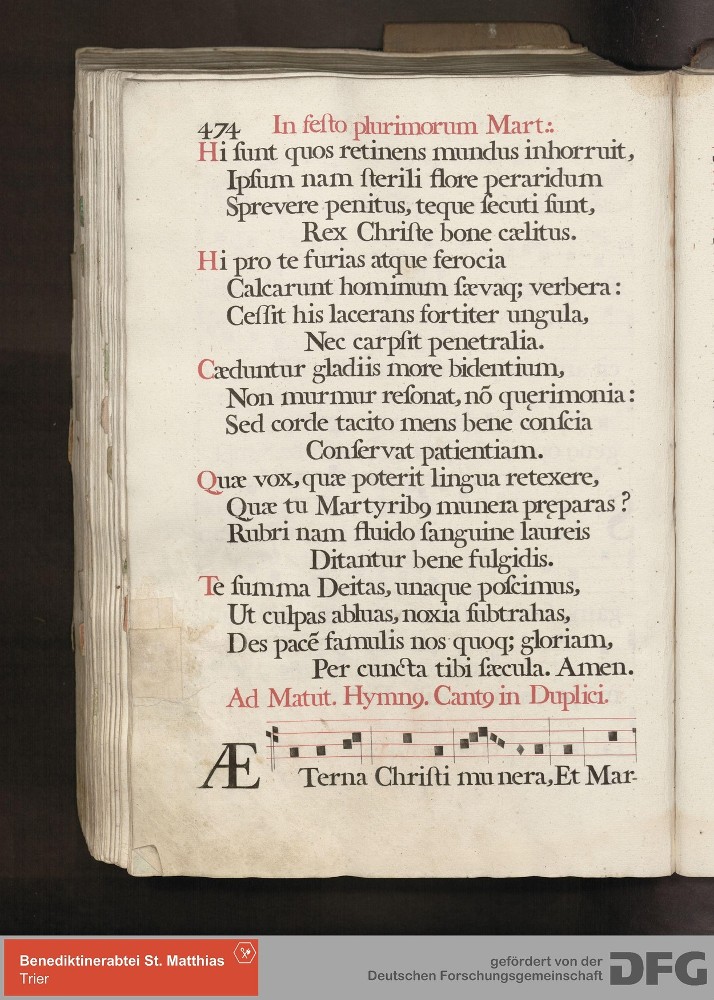 474 In feſto plurimorum Mart:.
Hi ſunt quos retinens mundus inhorruit,
Ipſum nam ſterili flore peraridum
Sprevere penitus, teque ſecuti ſunt,
Rex Chriſte bone cælitus.
Hi pro te furias atque ferocia
Calcarunt hominum ſævaq; verbera:
Ceſſit his lacerans fortiter ungula,
Nec carpſit penetralia.
Cæduntur gladiis more bidentium,
Non murmur reſonat, nõ quęrimonia:
Sed corde tacito mens bene conſcia
Conſervat patientiam.
Quæ vox, quæ poterit lingua retexere,
Quæ tu Martyribꝯ munera pręparas?
Rubri nam fluido ſanguine laureis
Ditantur bene fulgidis.
Te ſumma Deitas, unaque poſcimus,
Ut culpas abluas, noxia ſubtrahas,
Des pacẽ famulis nos quoq; gloriam,
Per cuncta tibi ſæcula. Amen.
Ad Matut. Hymnꝯ. Cantꝯ in Duplici.
ÆTerna Chriſti munera, Et Mar-
Benediktinerabtei St. Matthias
Trier
gefördert von der
Deutschen Forschungsgemeinschaft DFG